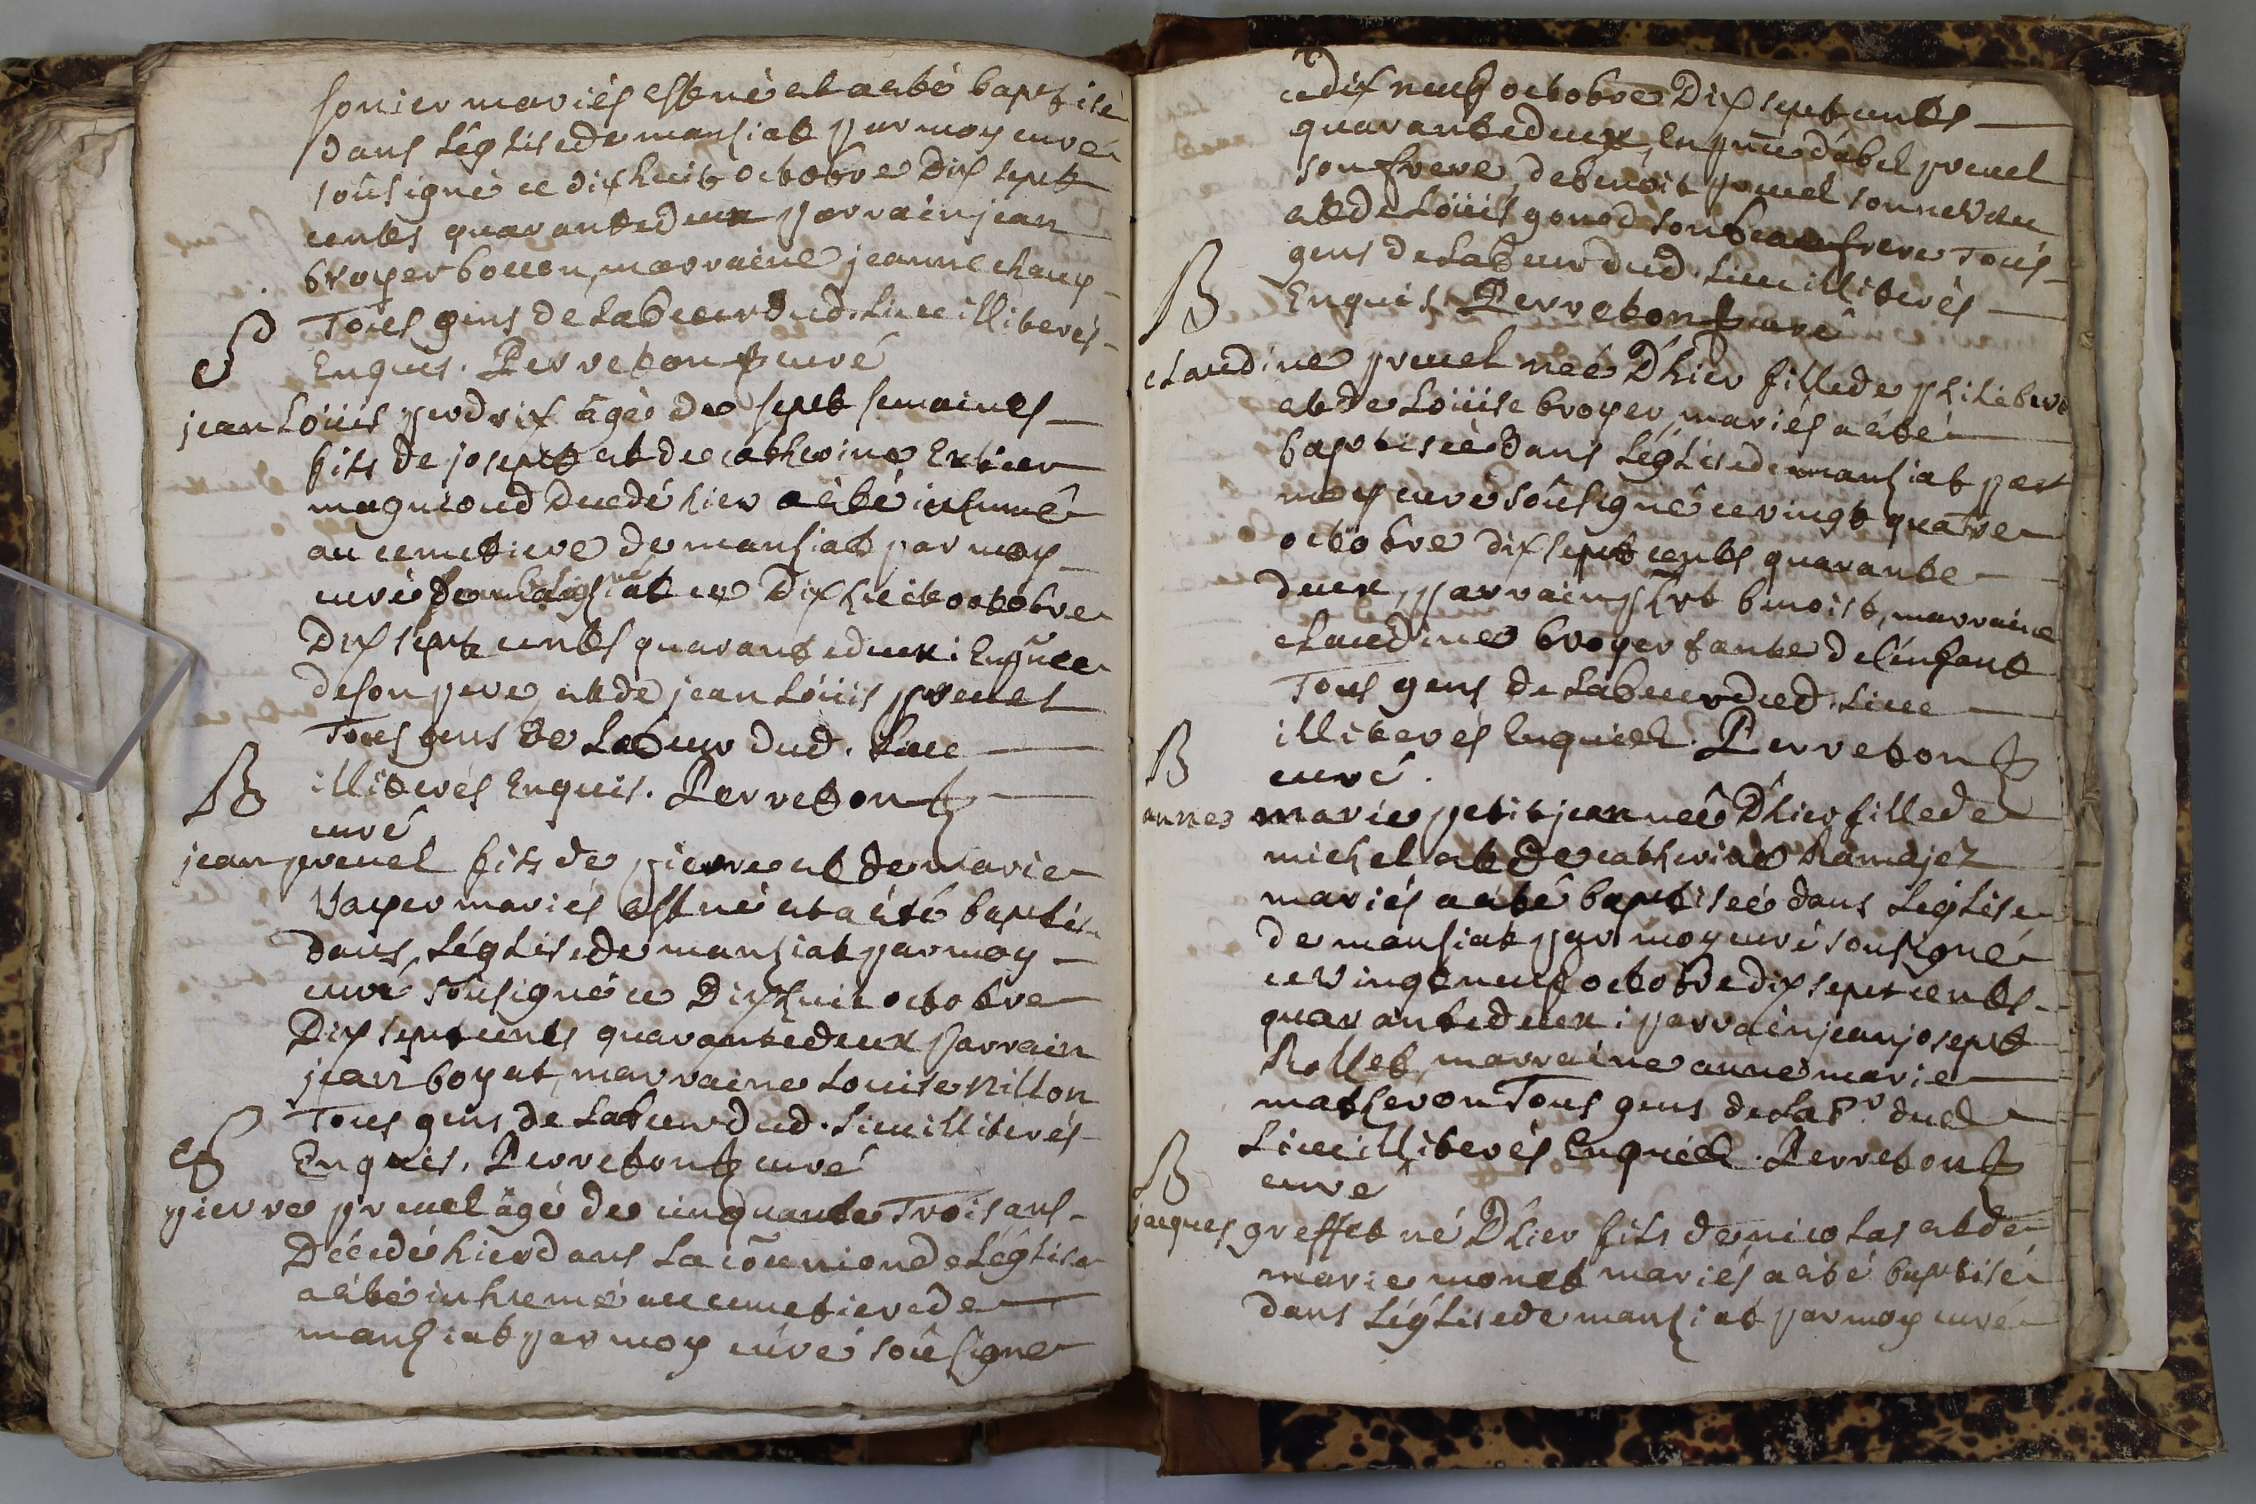 sonier mariés est né et a eté baptisé
dans Léglise de manziat par moy curé
soûsigné ce dix huit octobre Dix sept
cents quarante deux parrain jean
broyer bouon, marraine jeanne
Tous gens de Labeur dud. Lieu illiterés
Enquis. Perreton curé
S
jean Loüis perdrix âgé de sept semaines
fils de josept et de catherine
decedé hier a êté inhumé
au cemetiere de manziat par moy
curé ce Dix huit octobre
Dix sept cents quarante deux : En pñce
de son pere, et de jean Loüis preuel
Tous gens de Labeur dud. Lieu
illiterés Enquis. Perreton
curé
B
jean preuel fils de pierre et de marie
Vayer mariés est né et a été baptisé
dans Léglise de manziat par moy
curé soûsigné ce Dix huit octobre
Dix sept cents quarante deux parrain
jean boyat, marraine Louise nillon
Tous gens de Labeur dud. Lieu illiterés
Enquis. Perreton curé
S
pierre preuel âgé de cinquante Trois ans
Décedé hier dans La cõmunion de Léglise
a êté inhumé au cemetiere de
manziat par moy curé soûsigné
ce dix neuf octobre Dix sept cents
quarante deux, En pñce d'abel preuel
son frere, de benoit preuel son neveu
et de Loüis gonod son beaufrere Tous
gens de Labeur dud. Lieu illiterés
Enquis. Perreton curé
B
claudine preuel neé D'hier fille de philibert
et de Loüise broyer, mariés a êté
baptiseé dans Léglise de manziat par
moy curé soûsigné ce vingt quatre
octobre dix sept cents quarante
deux, parrain phrt benoist, marraine
claudine broyer tante de l'enfant
Tous gens de Labeur dud. Lieu
illiterés Enquis. Perreton
curé.
B
anne marie petitjean neé D'hier fille de
michel et de catherine Ramajez
mariés a eté baptiseé dans Léglise
de manziat par moy curé sousigné
ce vingt neuf octobre dix sept cents
quarante deux : parrain jean josept
Rollet, marraine anne marie
matheron Tous gens de Labr. dud
Lieu illiterés Enquis. Perreton
curé
B
jacques greffet né D'hier fils de nicolas et de
marie monet mariés a êté baptisé
dans Léglise de manziat par moy curé